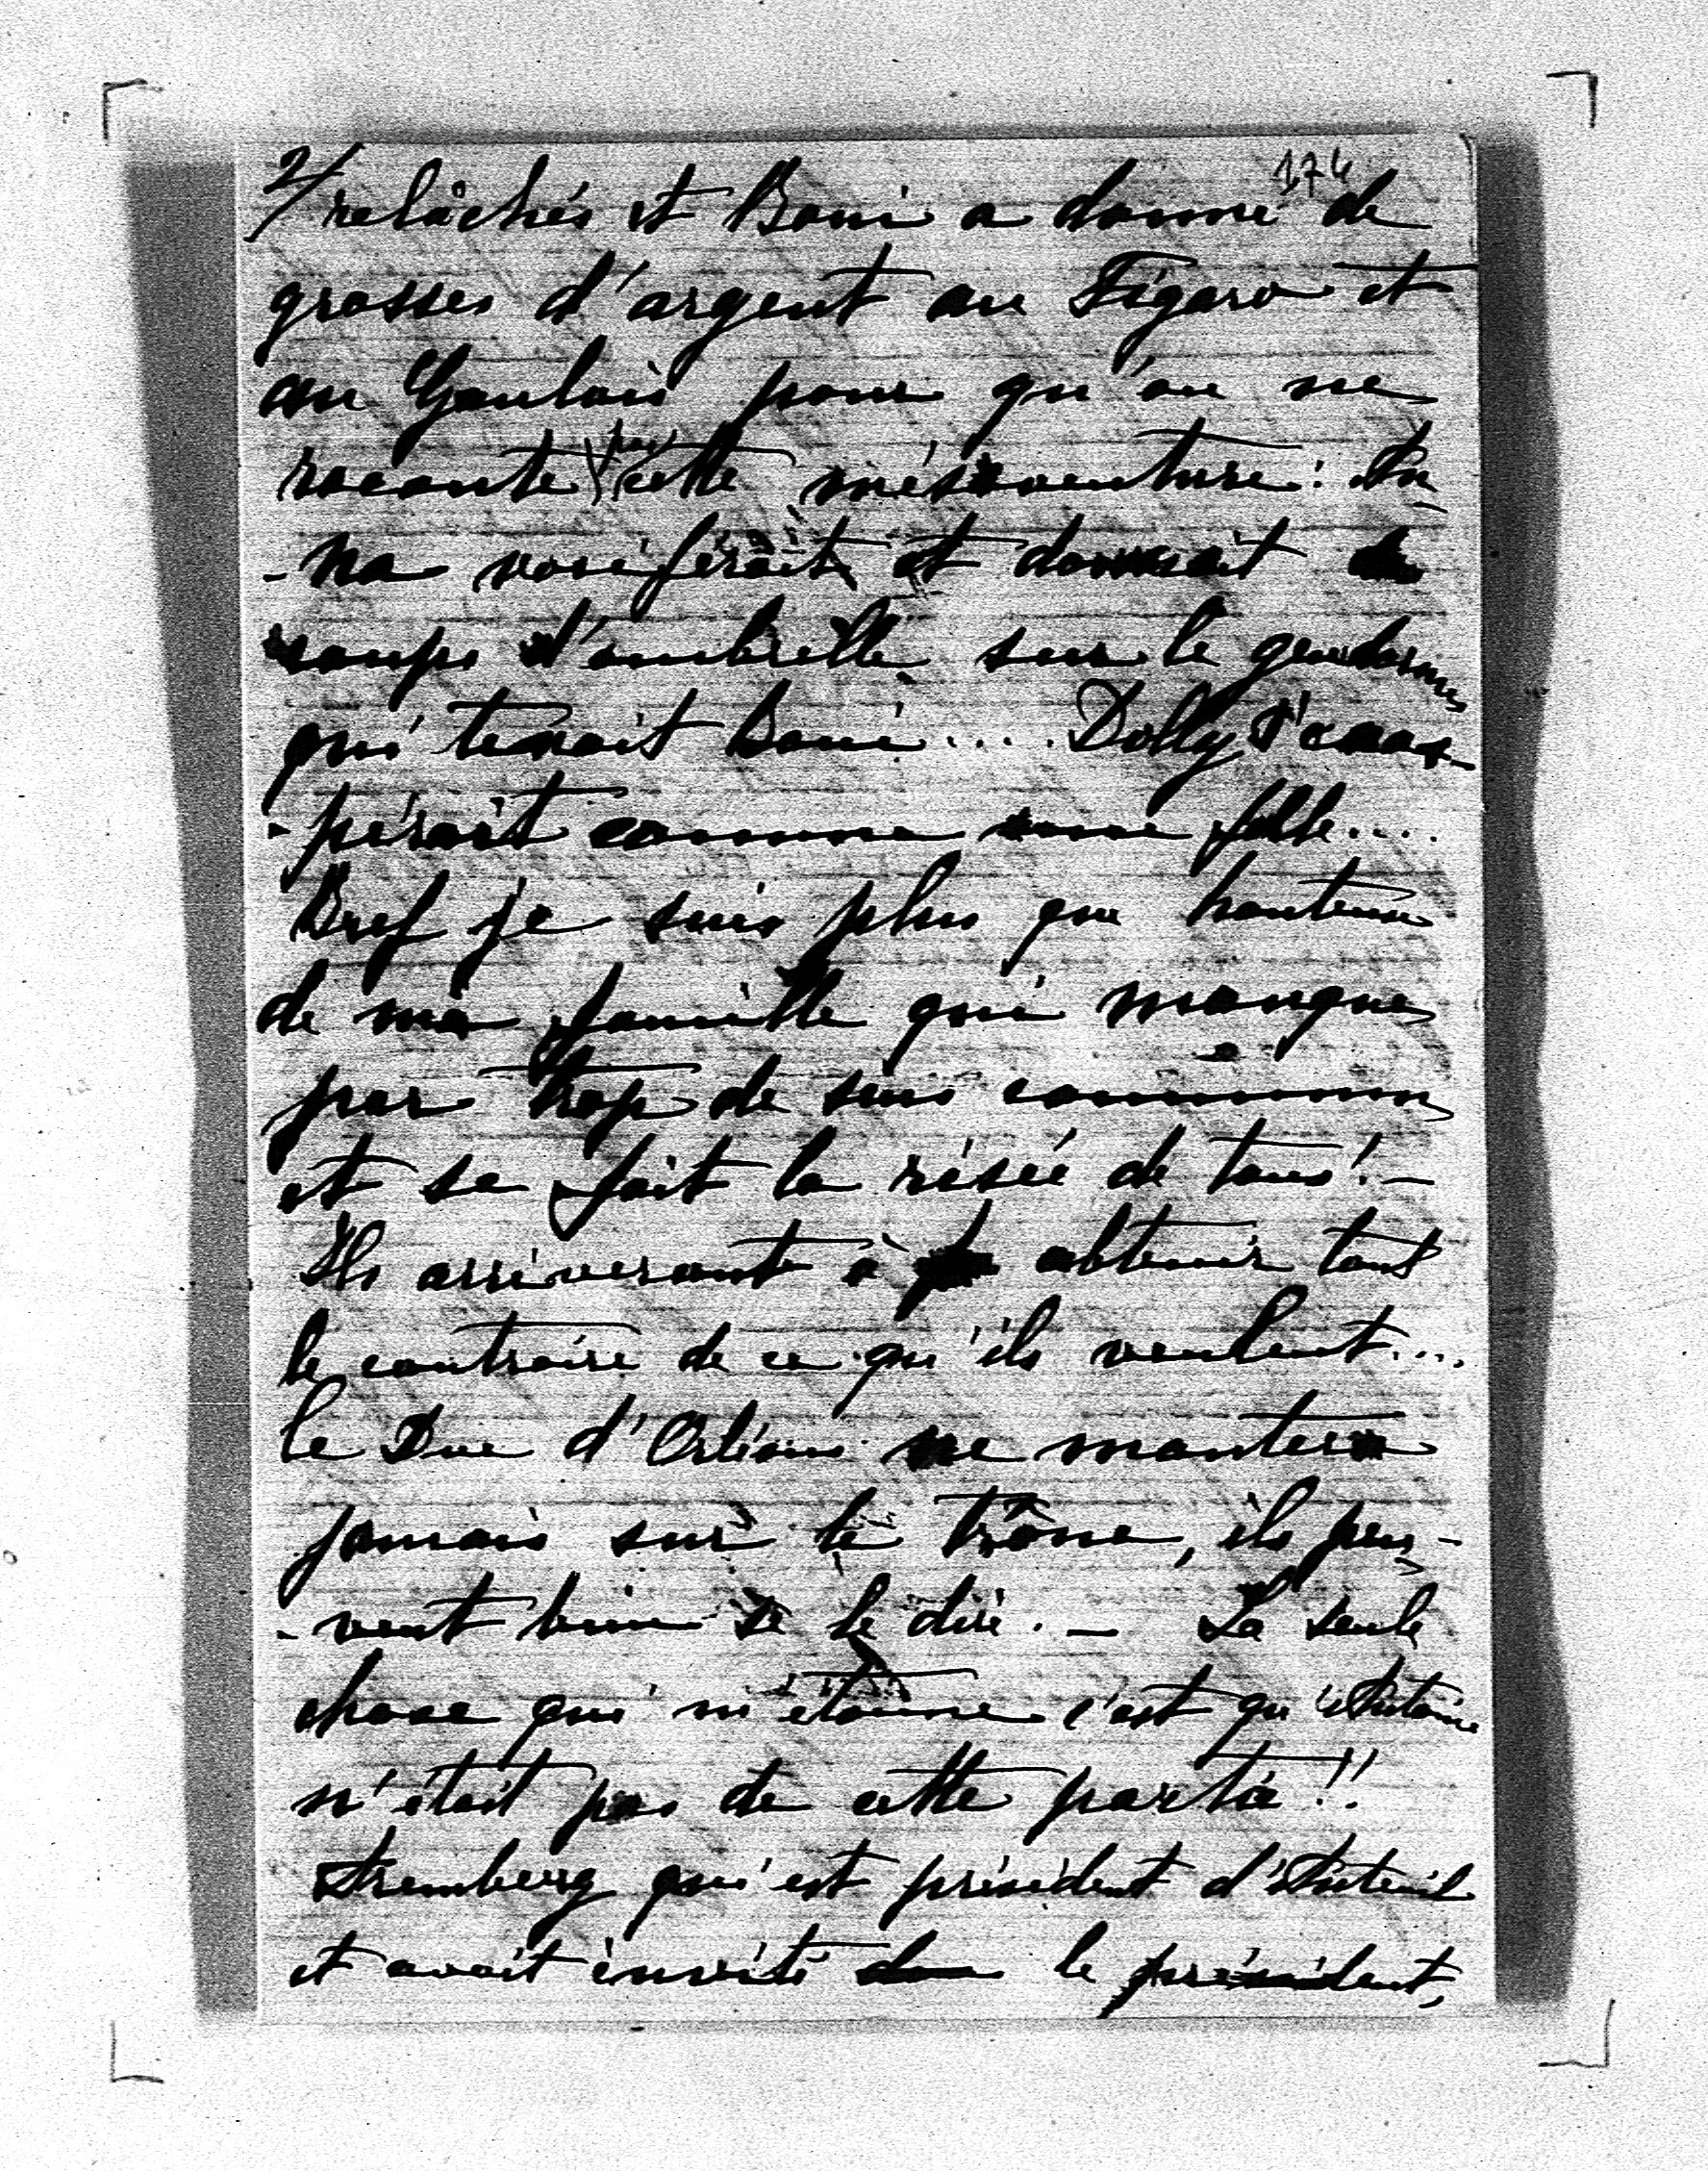 174
2/ relâchés et Boni a donné de
grosses d'argent au Figaro et
au Gaulois pour qu'on ne
raconte pas cette mésaventure: An
-na vociférait et donnait des
coups d'ombrelle sur le gendarme
qui tenait Boni.... Dolly s'exas-
-pérait comme une folle....
Bref je suis plus que honteuse
de ma famille qui manque
par trop de sens commun
et se fait la risée de tous! -
Ils arriveront à obtenir tout
le contraire de ce qu'ils veulent...
le Duc d'Orléans ne montera
jamais sur le trône, ils peu-
-vent bien se le dire. - La seule
chose qui m'étonne c'est qu'Antoine
n'était pas de cette partie!!
qui est président d'Auteuil
et avait invité le président,